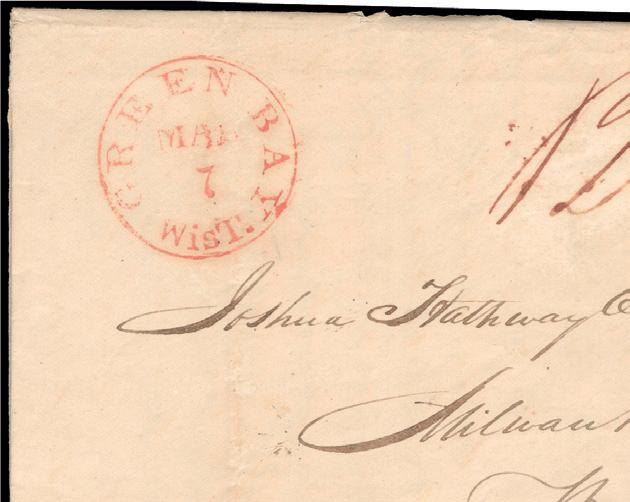 GREEN BAY
MAR
7
WisT.
12
Joshua Hathway
Milwau